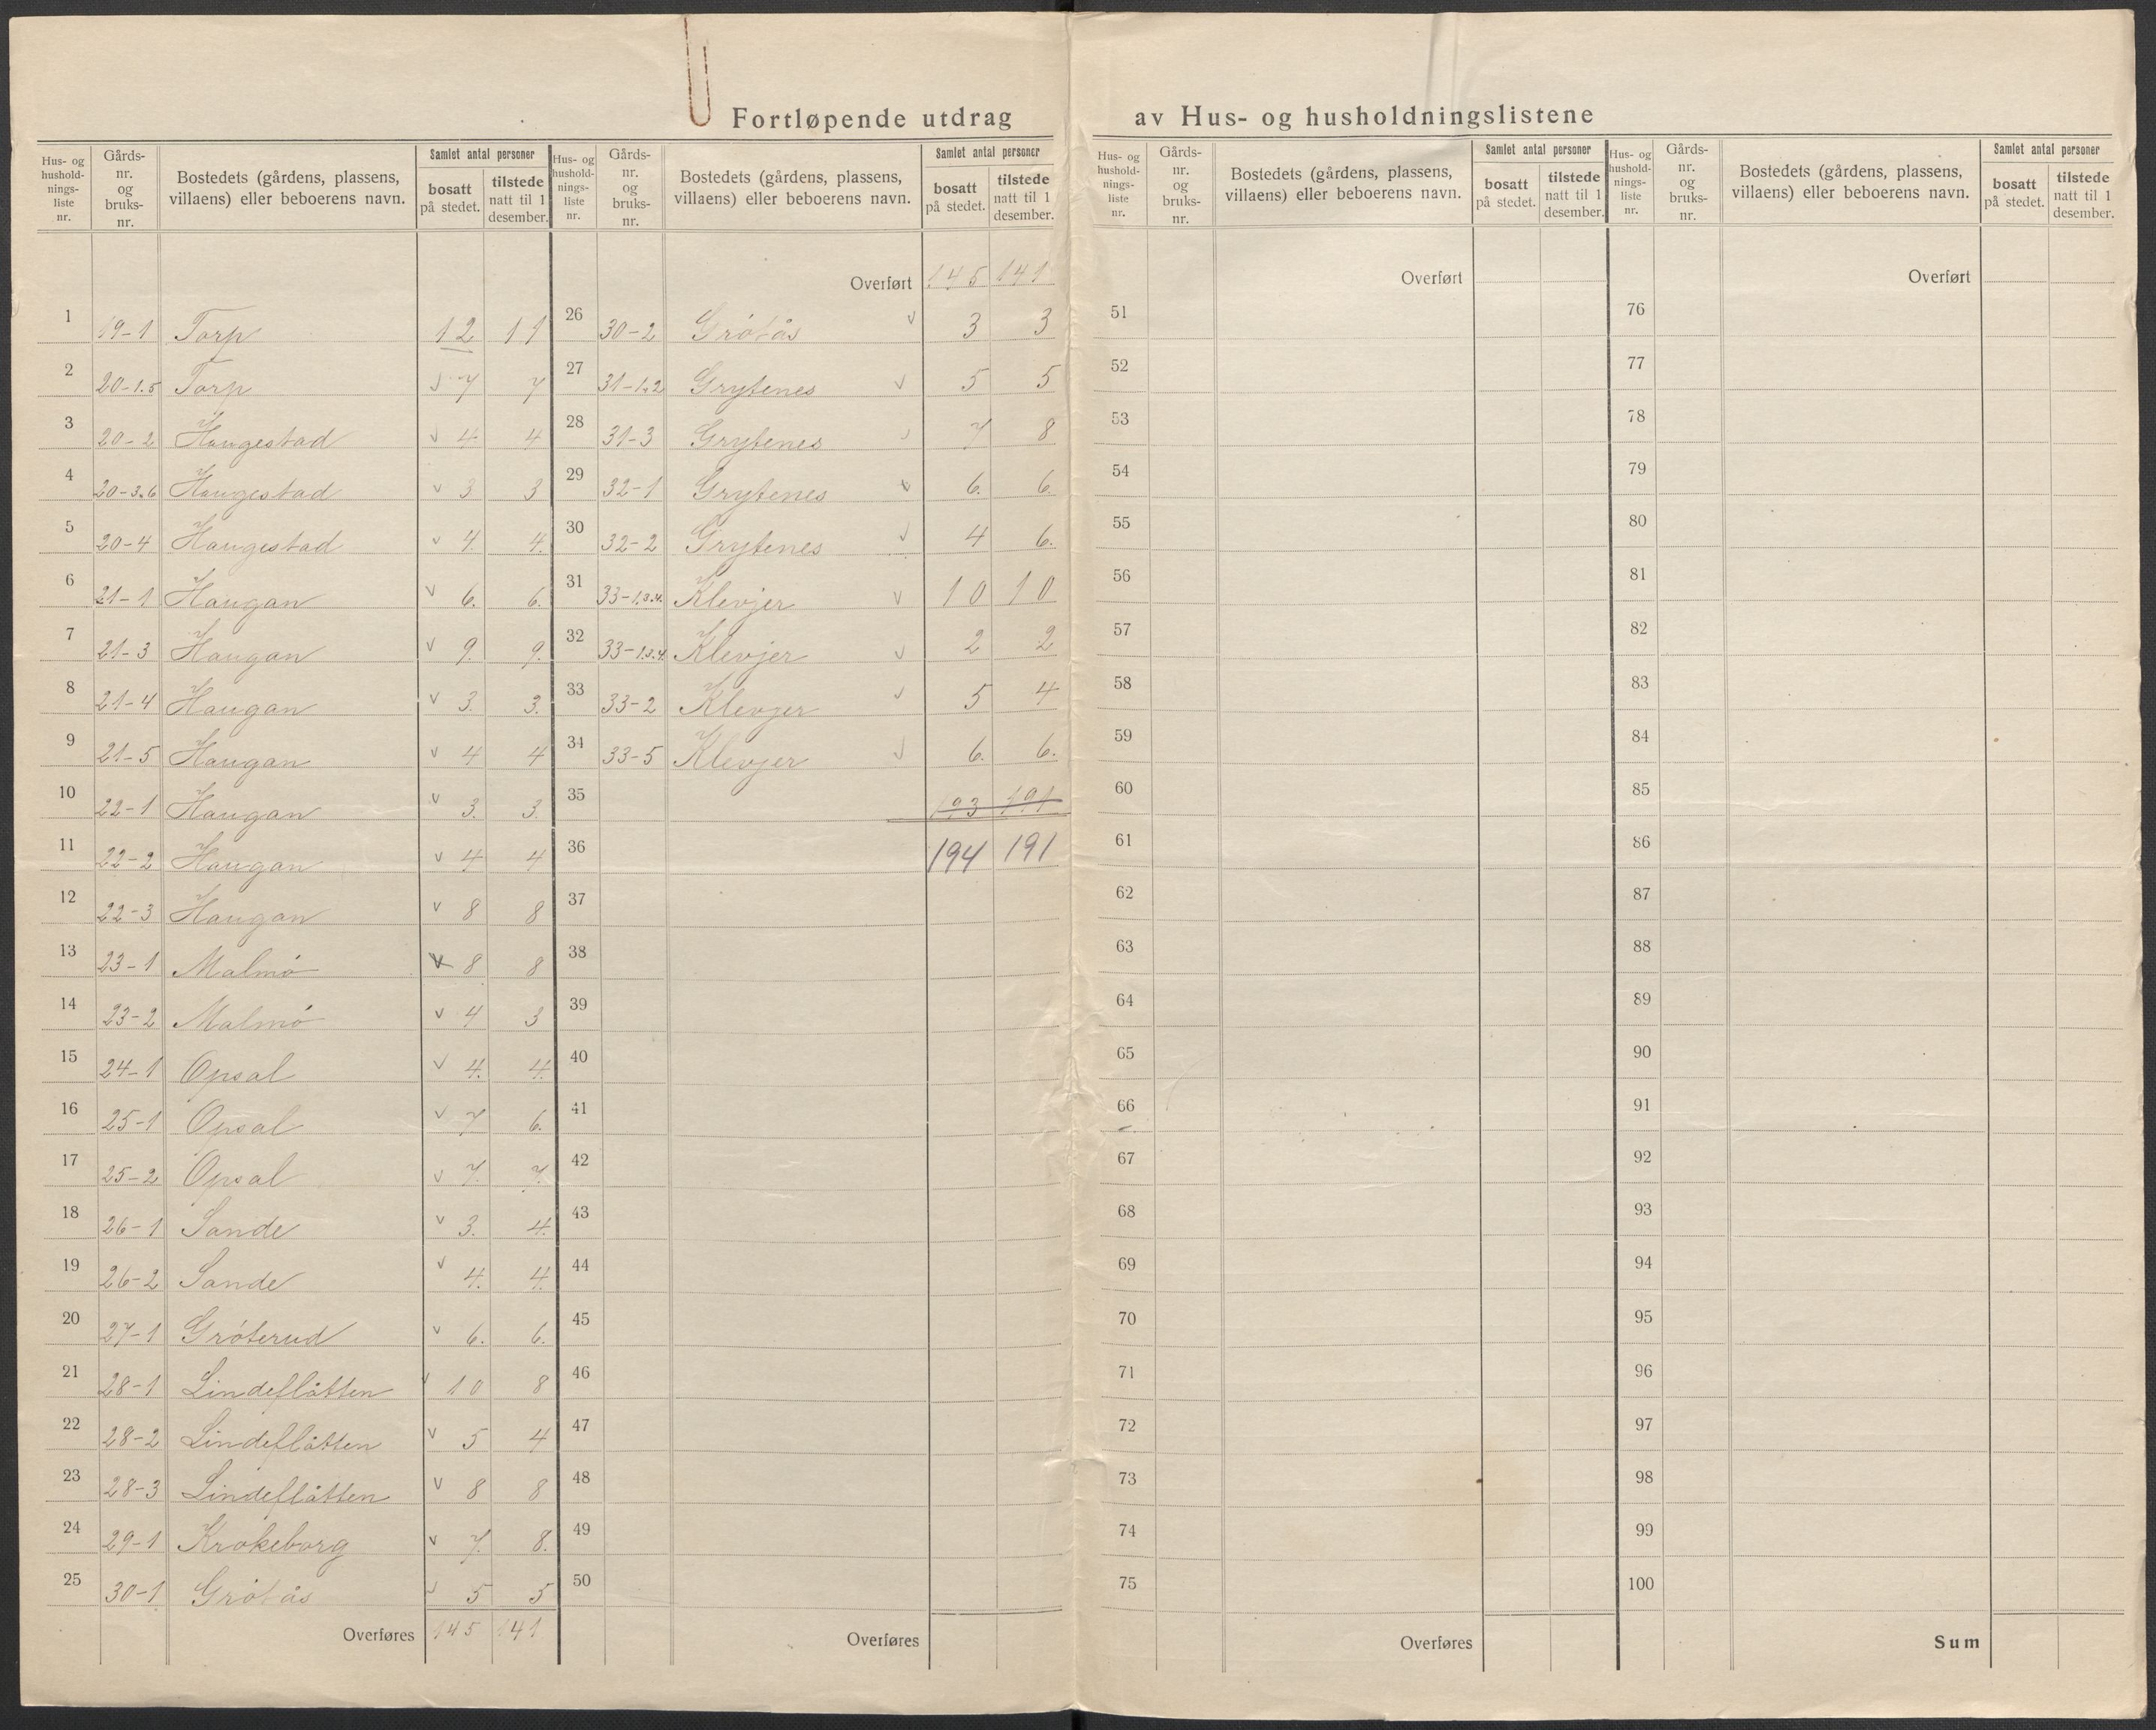 Fortløpende utdrag av Hus- og husholdningslistene
Hus- og hushold-nings-liste nr. | Gårds-nr. og bruks-nr. | Bostedets (gårdens, plassens, villaens) eller beboerens navn. | Samlet antal personer | bosatt på stedet. | tilstede natt til 1 desember.
1 19-1 Torp 12 11
2 20-1.5 Torp v 7 7
3 20-2 Haugestad v 4 4
4 20-3.6 Haugestad v 3 3
5 20-4 Haugestad v 4 4.
6 21-1 Haugan v 6. 6.
7 21-3 Haugan v 9. 9.
8 21-4 Haugan v 3. 3.
9 21-5 Haugan v 4 4
10 22-1 Haugan v 3. 3.
11 22-2 Haugan v 4 4
12 22-3 Haugan v 8 8
13 23-1 Malmö v 8 8
14 23-2 Malmö v 4 3
15 24-1 Opsal v 4. 4.
16 25-1 Opsal v 7 6.
17 25-2 Opsal v 7. 7.
18 26-1 Sande v 3. 4.
19 26-2 Sande v 4. 4.
20 27-1 Gróterud v 6. 6.
21 28-1 Lindeflåtten v 10 8
22 28-2 Lindeflåtten v 5 4
23 28-3 Lindeflåtten v 8 8
24 29-1 Krokeborg v 7. 8.
25 30-1 Grótås v 5 5
Overføres 145 141
Hus- og hushold-nings-liste nr. | Gårds-nr. og bruks-nr. | Bostedets (gårdens, plassens, villaens) eller beboerens navn. | Samlet antal personer | bosatt på stedet. | tilstede natt til 1 desember.
Overført 145 141
26 30-2 Grótås v 3 3
27 31-1.2 Grytenes v 5 5
28 31-3 Grytenes v 7 8
29 32-1 Grytenes v 6. 6.
30 32-2 Grytenes v 4 6.
31 33-1.3.4. Klevjer v 10 10
32 33-1.3.4. Klevjer v 2 2
33 33-2 Klevjer v 5 4
34 33-5 Klevjer v 6. 6.
35 193 191
36 194 191
37
38
39
40
41
42
43
44
45
46
47
48
49
50
Overføres
Hus- og hushold-nings-liste nr. | Gårds-nr. og bruks-nr. | Bostedets (gårdens, plassens, villaens) eller beboerens navn. | Samlet antal personer | bosatt på stedet. | tilstede natt til 1 desember.
Overført
51
52
53
54
55
56
57
58
59
60
61
62
63
64
65
66
67
68
69
70
71
72
73
74
75
Overføres
Hus- og hushold-nings-liste nr. | Gårds-nr. og bruks-nr. | Bostedets (gårdens, plassens, villaens) eller beboerens navn. | Samlet antal personer | bosatt på stedet. | tilstede natt til 1 desember.
Overført
76
77
78
79
80
81
82
83
84
85
86
87
88
89
90
91
92
93
94
95
96
97
98
99
100
Sum